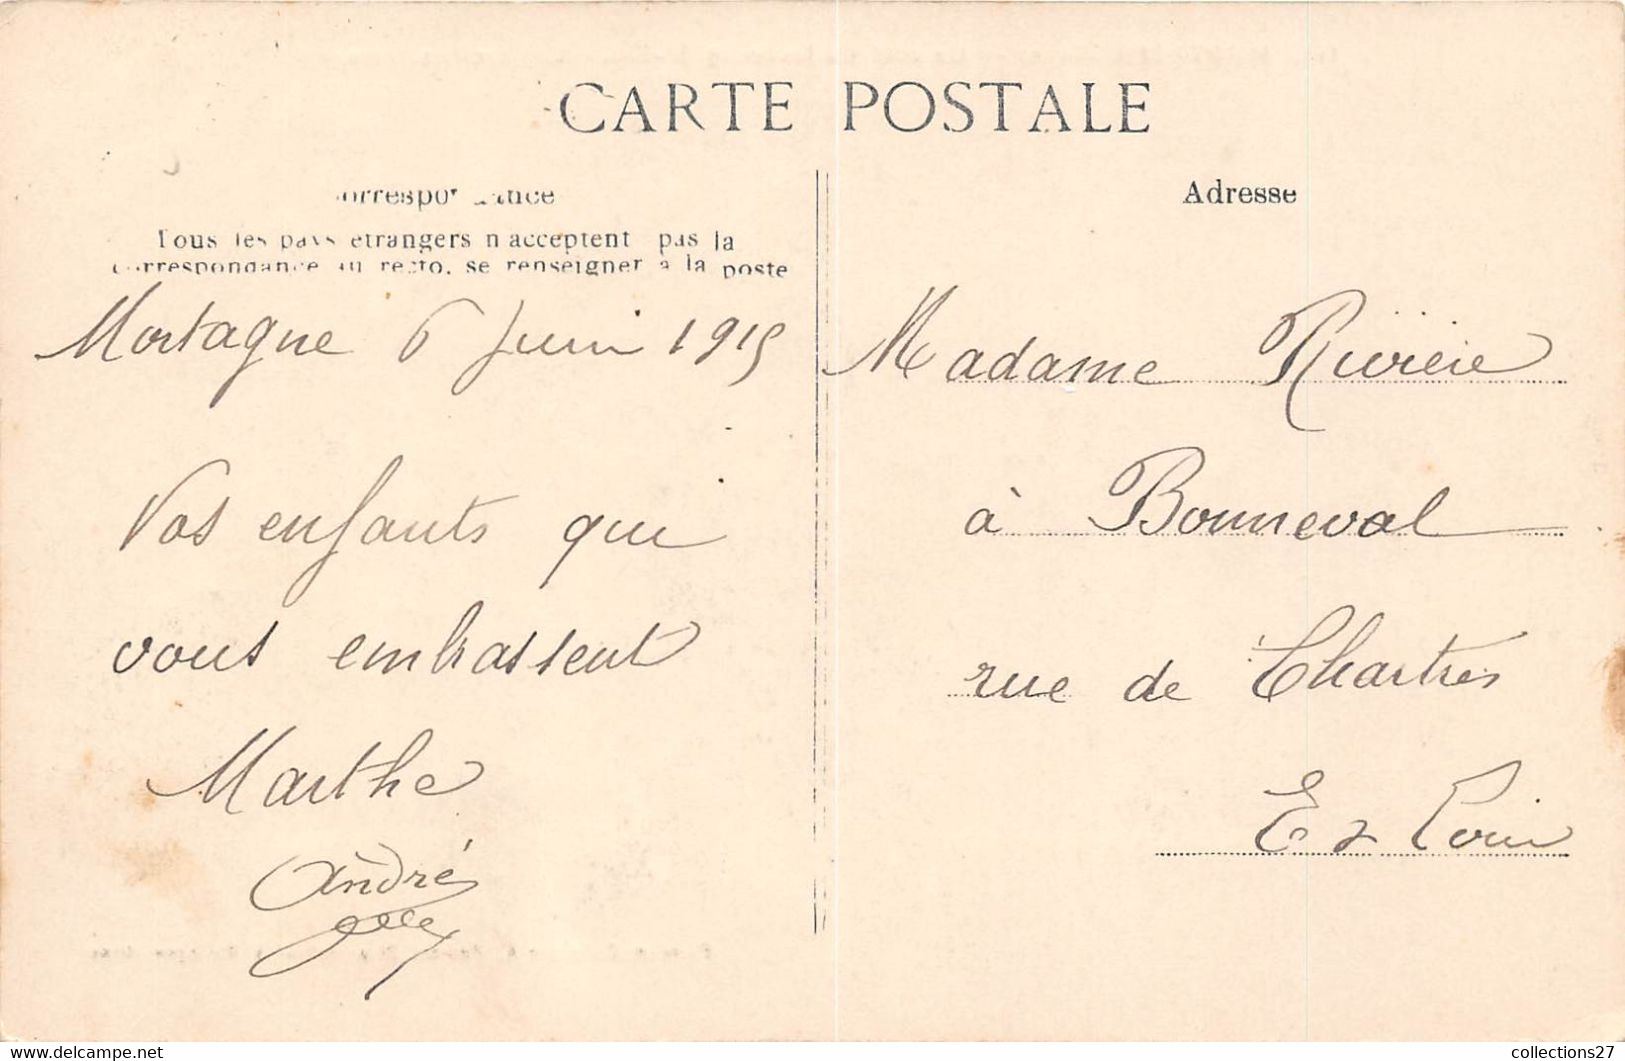 CARTE POSTALE
Correspondance
Tous les pays étrangers n'acceptent pas la
correspondance au recto, se renseigner à la poste
Mortagne 6 Juin 1915
Vos enfants qui
vous embrassent
Marthe
André
Adresse
Madame Rivière
à Bonneval
rue de Chartres
E & Loir
collections27